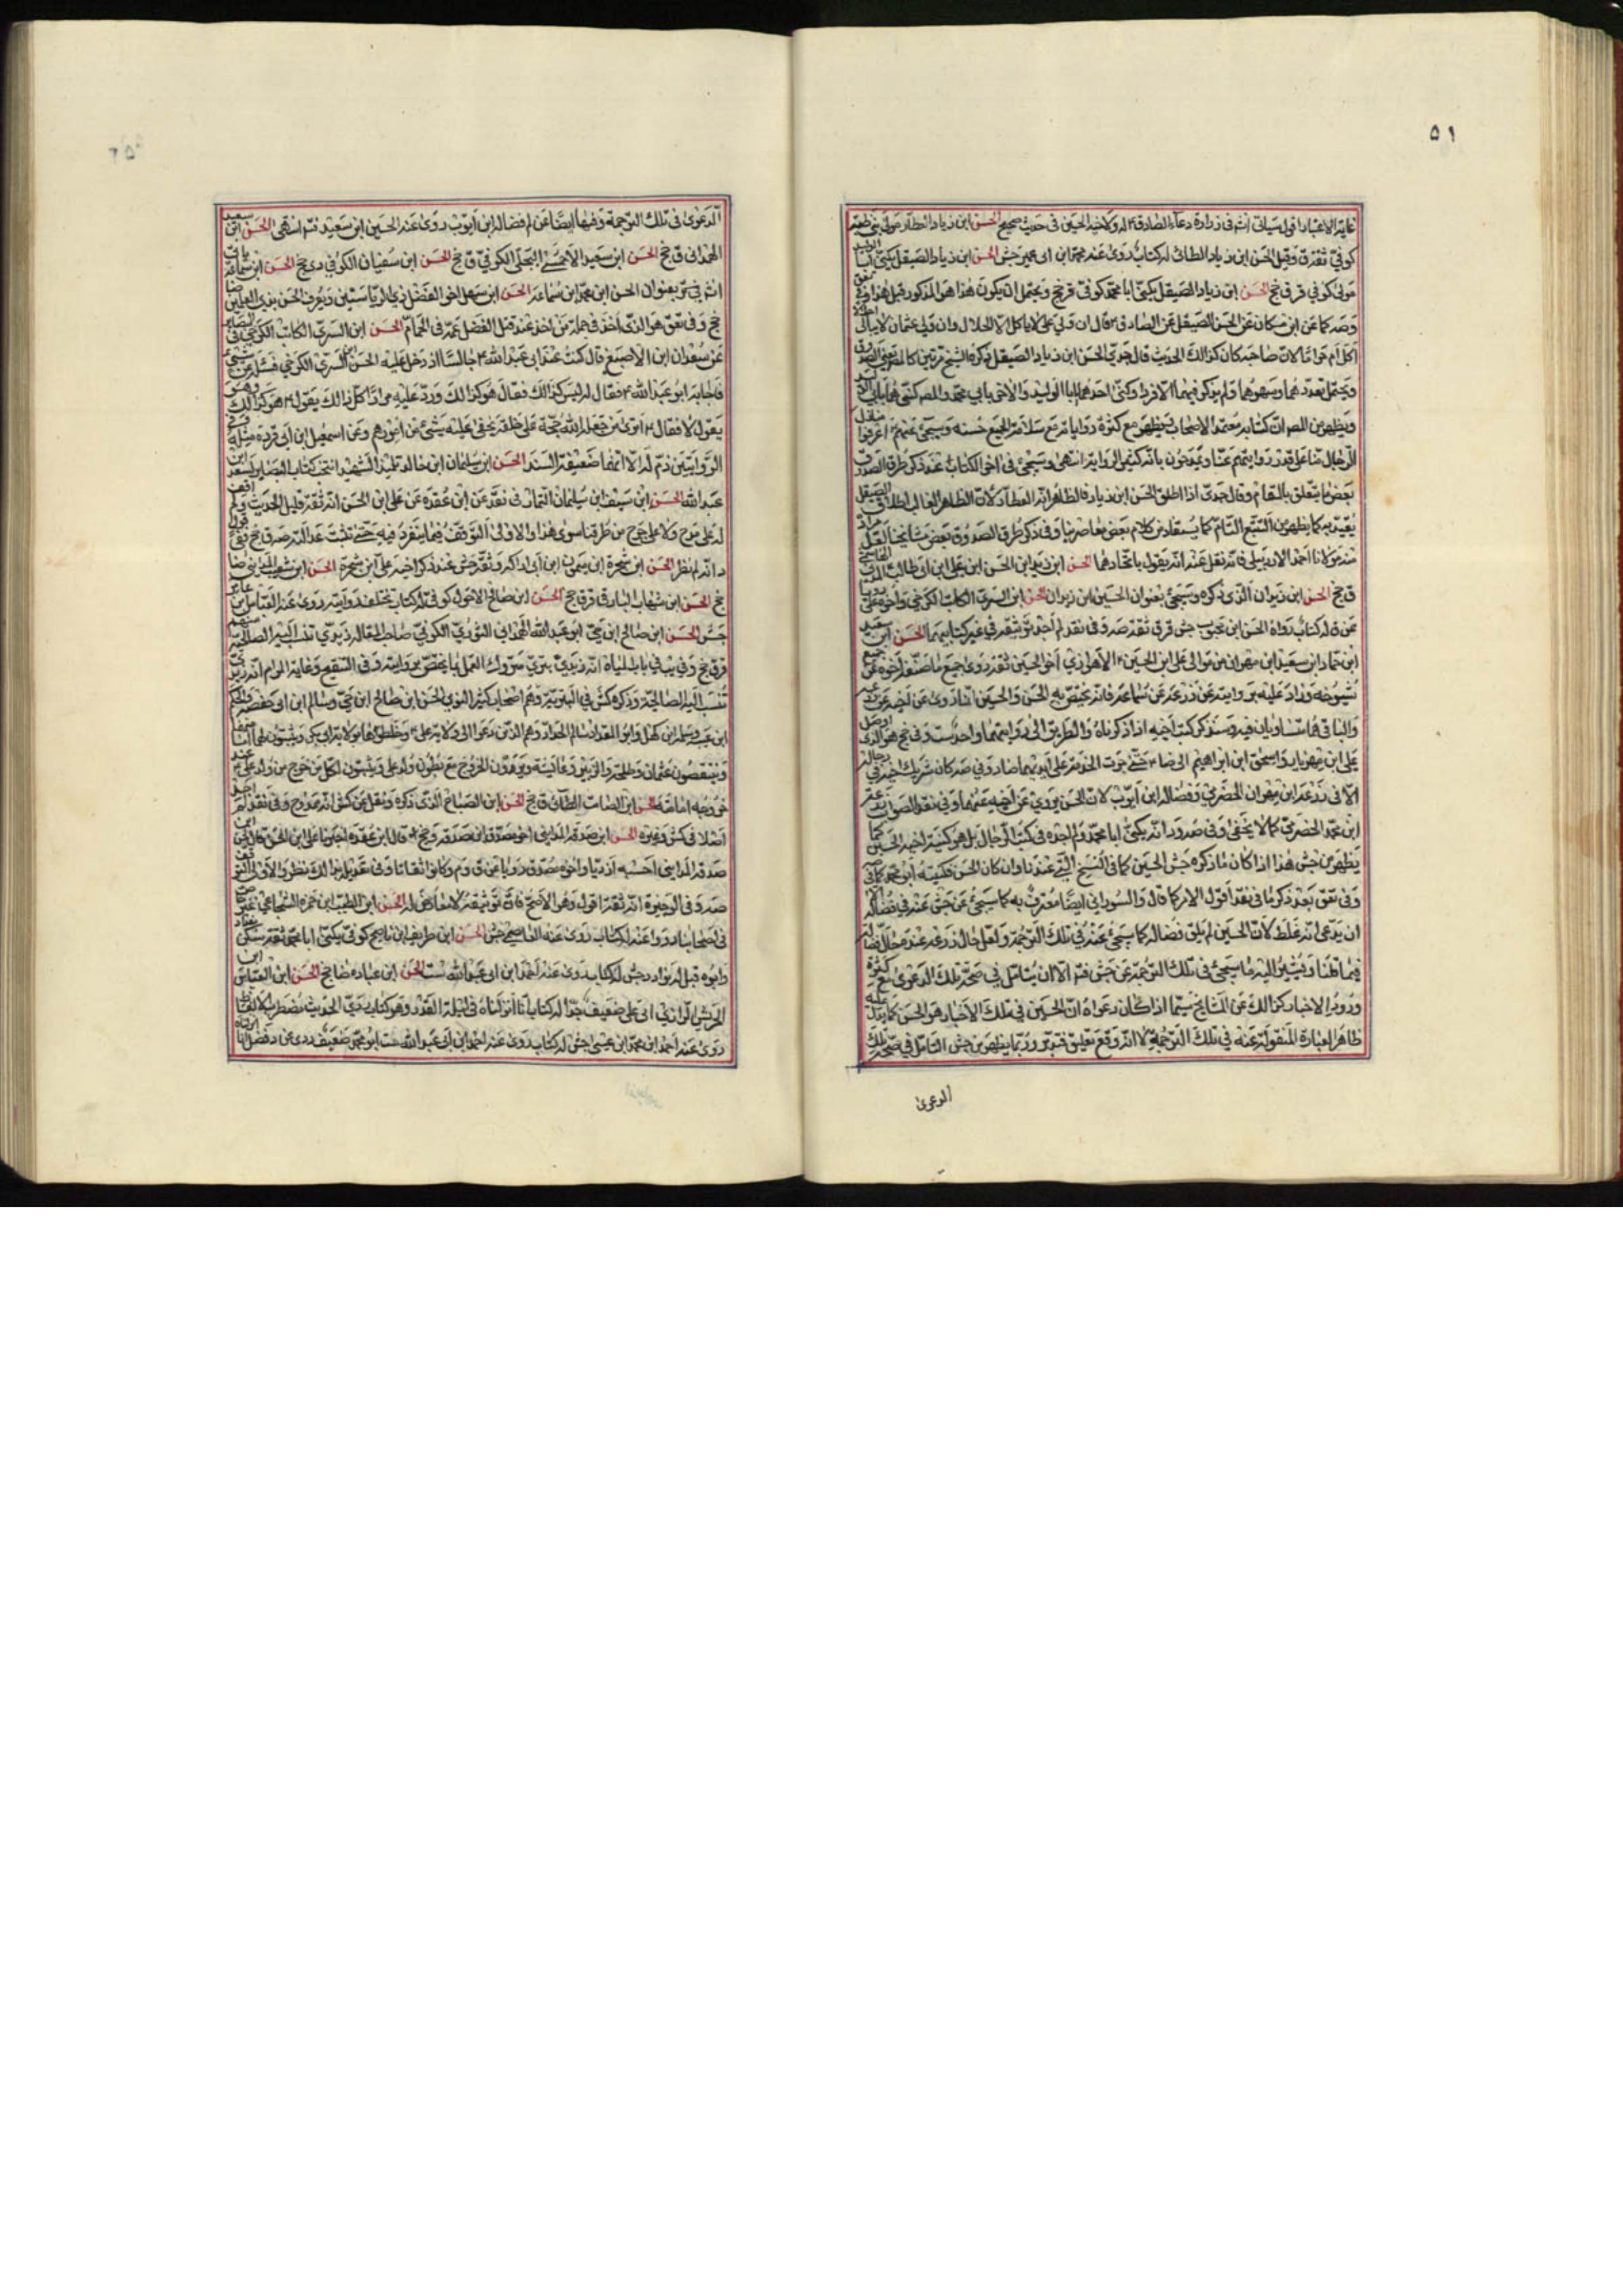 ۵۱
غاية الاعتبار اقول سيأتي انشم في زرارة دعاء الصادق له ولاخيه الحسين في حديث صحيح الحسن ابن زياد العطار مولى بني ضبة
كوفي ثقة ق وقيل الحسن ابن زياد الطائي له كتاب روى عنه محمد ابن ابي عمير جش الحسن ابن زياد الصيقل يكنى ابا الوليد
مولى كوفي ق ر ق جخ الحسن ابن زياد الصيقل يكنى ابا محمد كوفي ق ر جخ ويحتمل ان يكون هذا هو المذكور قبل هذا
عن ابن مسكان عن الحسن الصيقل عن الصادق قال ان ولي علي لا ياكل الا الحلال وان ولي عثمان لا يبالي
اكل ام حراما لان صاحبه كان كذالك الحديث قال جدي الحسن ابن زياد الصيقل ذكره الشيخ مرتين
ويحتمل تعددهما وسهوهما ولم يذكر فيهما الا فردا وكنى احدهما بابا الوليد والاخر بابي محمد والمص كنى هما بابي
ويظهر من المص ان كتابه معتمد الاصحاب فيظهر مع كثرة رواياته مع سلامة الجميع حسنه وسيجيء عنهم اعرفوا منازل
الرجال منا على قدر رواياتهم عنا ويمدحون بانه كثير الرواية انتهى وسيجيء في اخر الكتاب عند ذكر طرق الصدوق
بعض ما يتعلق بالمقام وقال جدي اذا اطلق الحسن ابن زياد فالظاهر انه العطار لان الظاهر الغالب اطلاق الصيقل
يقيد به كما يظهر من التتبع التام كما يستفاد من كلام بعض معاصرينا وفي ذكر طرق الصدوق بعض مشايخنا
مولانا احمد الاردبيلي فانه نقل عنه انه يقول باتحادهما الحسن ابن زيد ابن الحسن ابن علي ابن ابي طالب المدني
ق جخ الحسن ابن زيدان الذي ذكره وسيجيء بعنوان الحسين ابن زيدان الحسن ابن السري الكاتب الكرخي واخوه علي
عن ق له كتاب رواه الحسن ابن محبوب جش ق ر ق ثقة صه وفي نقد لم اجد توثيقه في غير كتابيهما الحسن ابن سعيد
ابن حماد ابن سعيد ابن مهران من موالي علي ابن الحسين الاهوازي اخو الحسين ثقة روى جميع ما صنفه اخوه عن جميع
شيوخه وزاد عليه بروايته عن زرعة عن سماعة فانه يختص به الحسن والحسين انما روى عن اخيه عن زرعة
والباقي هما متساويان فيه وسنذكر كتب اخيه اذا ذكرناه والطريق الى روايتهما واحد ست وفي جخ هو الذي اوصل
علي ابن مهزيار واسحق ابن ابراهيم الى ضا حتى جرت الخدمة على ايديهما ضا د وفي صه كان شريك اخيه في رجاله
الا في زرعة ابن مهران الحضرمي وفضالة ابن ايوب لان الحسن يروي عن اخيه عنهما وفي نقد الصواب زرعة
ابن محمد الحضرمي كما لا يخفى وفي صه و د انه يكنى ابا محمد ولم اجده في كتب الرجال بل هو كنية اخيه الحسين كما
يظهر من جش هذا اذا كان ما ذكره جش الحسين كما في النسخ التي عندنا وان كان الحسن فكنيته ابو محمد كما في صه
وفي تعق بعد ذكر ما في نقد اقول الامر كما قال والسوراني ايضا معترف به كما سيجيء عن جش عنه في فضالة الا
ان يدعي انه غلط لان الحسين لم يلق فضالة كما سيجيء عنه في تلك الترجمة ولعل حال زرعة عنده حال فضالة
فيما قلنا ويشير اليه ما سيجيء في تلك الترجمة عن جش فتم الا ان يتامل في صحة تلك الدعوى مع كثرة
ورود الاخبار كذالك عن المشايخ سيما اذا كان دعواه ان الحسين في تلك الاخبار هو الحسن كما يدل عليه
ظاهر العبارة المنقولة عنه في تلك الترجمة لا انه وقع تعليق فتدبر وربما يظهر من جش التامل في صحة تلك
الدعوى
الدعوى في تلك الترجمة وفيها ايضا عن لم فضالة ابن ايوب روى عنه الحسين ابن سعيد فتم انتهى الحسن ابن سعيد
الهمداني ق جخ الحسن ابن سعيد الاحمسي البجلي الكوفي ق جخ الحسن ابن سفيان الكوفي دي جخ الحسن ابن سماعة ياتي
انشم في مو بعنوان الحسن ابن محمد ابن سماعة الحسن ابن سهل اخو الفضل ذي الرياستين ويعرف الحسن بذي العلمين ضا
جخ وفي تعق هو الذي اخذ في جملة من اخذ عند قتل الفضل عمه في الحمام الحسن ابن السري الكاتب الكرخي في البصائر
عن سعدان ابن الاصبغ قال كنت عند ابي عبد الله جالسا اذ دخل عليه الحسن ابن السري الكرخي فسئله عن شيء
فاجابه ابو عبد الله فقال له ليس كذالك فقال هو كذالك ورد عليه مرارا كل ذالك يقول هو كذالك وهو
يقول لا فقال اترى من جعله الله حجة على خلقه يخفى عليه شيء من امورهم وعن اسمعيل ابن ابي قردة مثله وفي
الروايتين ذم له الا انهما ضعيفة السند الحسن ابن سليمان ابن خالد تلميذ الشهيد انتخب كتاب البصاير لسعد ابن
عبد الله الحسن ابن سيف ابن سليمان التمار في نقد عن ابن عقدة عن علي ابن الحسن انه ثقة قليل الحديث ولم اقف
له على مدح ولا على جرح من طرقنا سوى هذا والاولى التوقف فيما ينفرد فيه حتى تثبت عدالته صه ق جخ
د انه لم نظر الحسن ابن شجرة ابن ميمون ابن ابي اراكة وثقه جش عند ذكر اخيه علي ابن شجرة الحسن ابن شعيب المدايني ضا
جخ الحسن ابن شهاب البارقي ق ر ق جخ الحسن ابن صالح الاحول كوفي له كتاب تختلف روايته روى عنه العباس ابن عامر
جش الحسن ابن صالح ابن حي ابو عبد الله الهمداني الثوري الكوفي صاحب المقالة زيدي تنسب اليه الصالحية منهم
ق ر ق جخ وفي يب في باب المياه انه زيدي بتري متروك العمل بما يختص بروايته وفي التنقيح وغاية المرام انه زيدي
تنسب اليه الصالحية وذكره كش في البترية وهم اصحاب كثير النوي الحسن ابن صالح ابن حي وسالم ابن ابي حفصة والحكم
ابن عيينة وسلمة ابن كهيل وابو المقدام سالم الحداد وهم الذين دعوا الى ولاية علي وخلطوها بولاية ابي بكر ويثبتون لهما
وينتقصون عثمان وطلحة والزبير وعائشة ويرون الخروج مع بطون ولد علي ويثبتون لكل من خرج من ولد علي عند
خروجه امامة الحسن ابن الصامت الطائي ق جخ الحسن ابن الصباح الذي ذكره د ونقل عن كش انه ممدوح وفي نقد لم اجد
اصلا في كش وغيره الحسن ابن صدقة المدايني اخو مصدق ابن صدقة ق جخ قال ابن عقدة اخبرنا علي ابن الحسن قال الحسن ابن
صدقة المدايني احسبه ازديا واخوه مصدق رويا عن ق و م وكانوا ثقاتا وفي تعديله بذالك نظر والاولى التوقف
صه وفي الوجيزة انه ثقة اقول وهو الاصح فان توثيقه لا معارض له الحسن ابن الطيب ابن حمزة الشجاعي غير خاص
في اصحابنا رووا عنه له كتاب روى عنه القاسم جش الحسن ابن ظريف ابن ناصح كوفي يكنى ابا محمد ثقة سكن بغداد
وابوه قبل له نوادر جش له كتاب روى عنه احمد ابن ابي عبد الله ست الحسن ابن عبادة ضا جخ الحسن ابن العباس ابن
الحريش الرازي ابي علي ضعيف جدا له كتاب انا انزلناه في ليلة القدر وهو كتاب ردي الحديث مضطرب الالفاظ
روى عنه احمد ابن محمد ابن عيسى جش له كتاب روى عنه احمد ابن ابي عبد الله ست ابو محمد ضعيف روى عن د فضل انا انزلناه